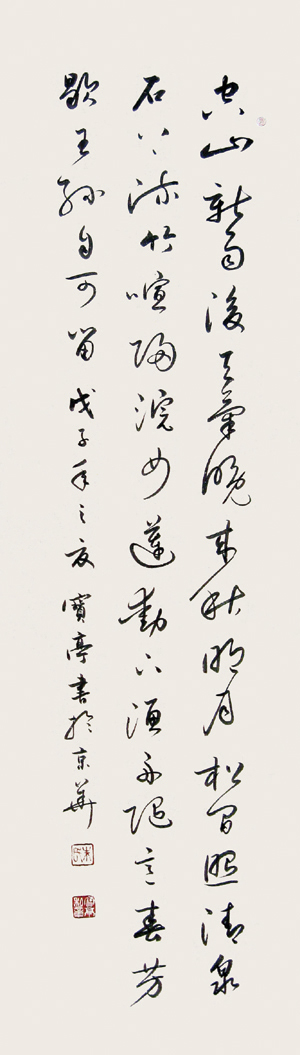 空山新雨後天氣晚來秋明月松間照清泉
石上流竹喧歸浣女蓮動下漁舟隨意春芳
歇王孫自可留 戊子年之夏 寶亭書於京華